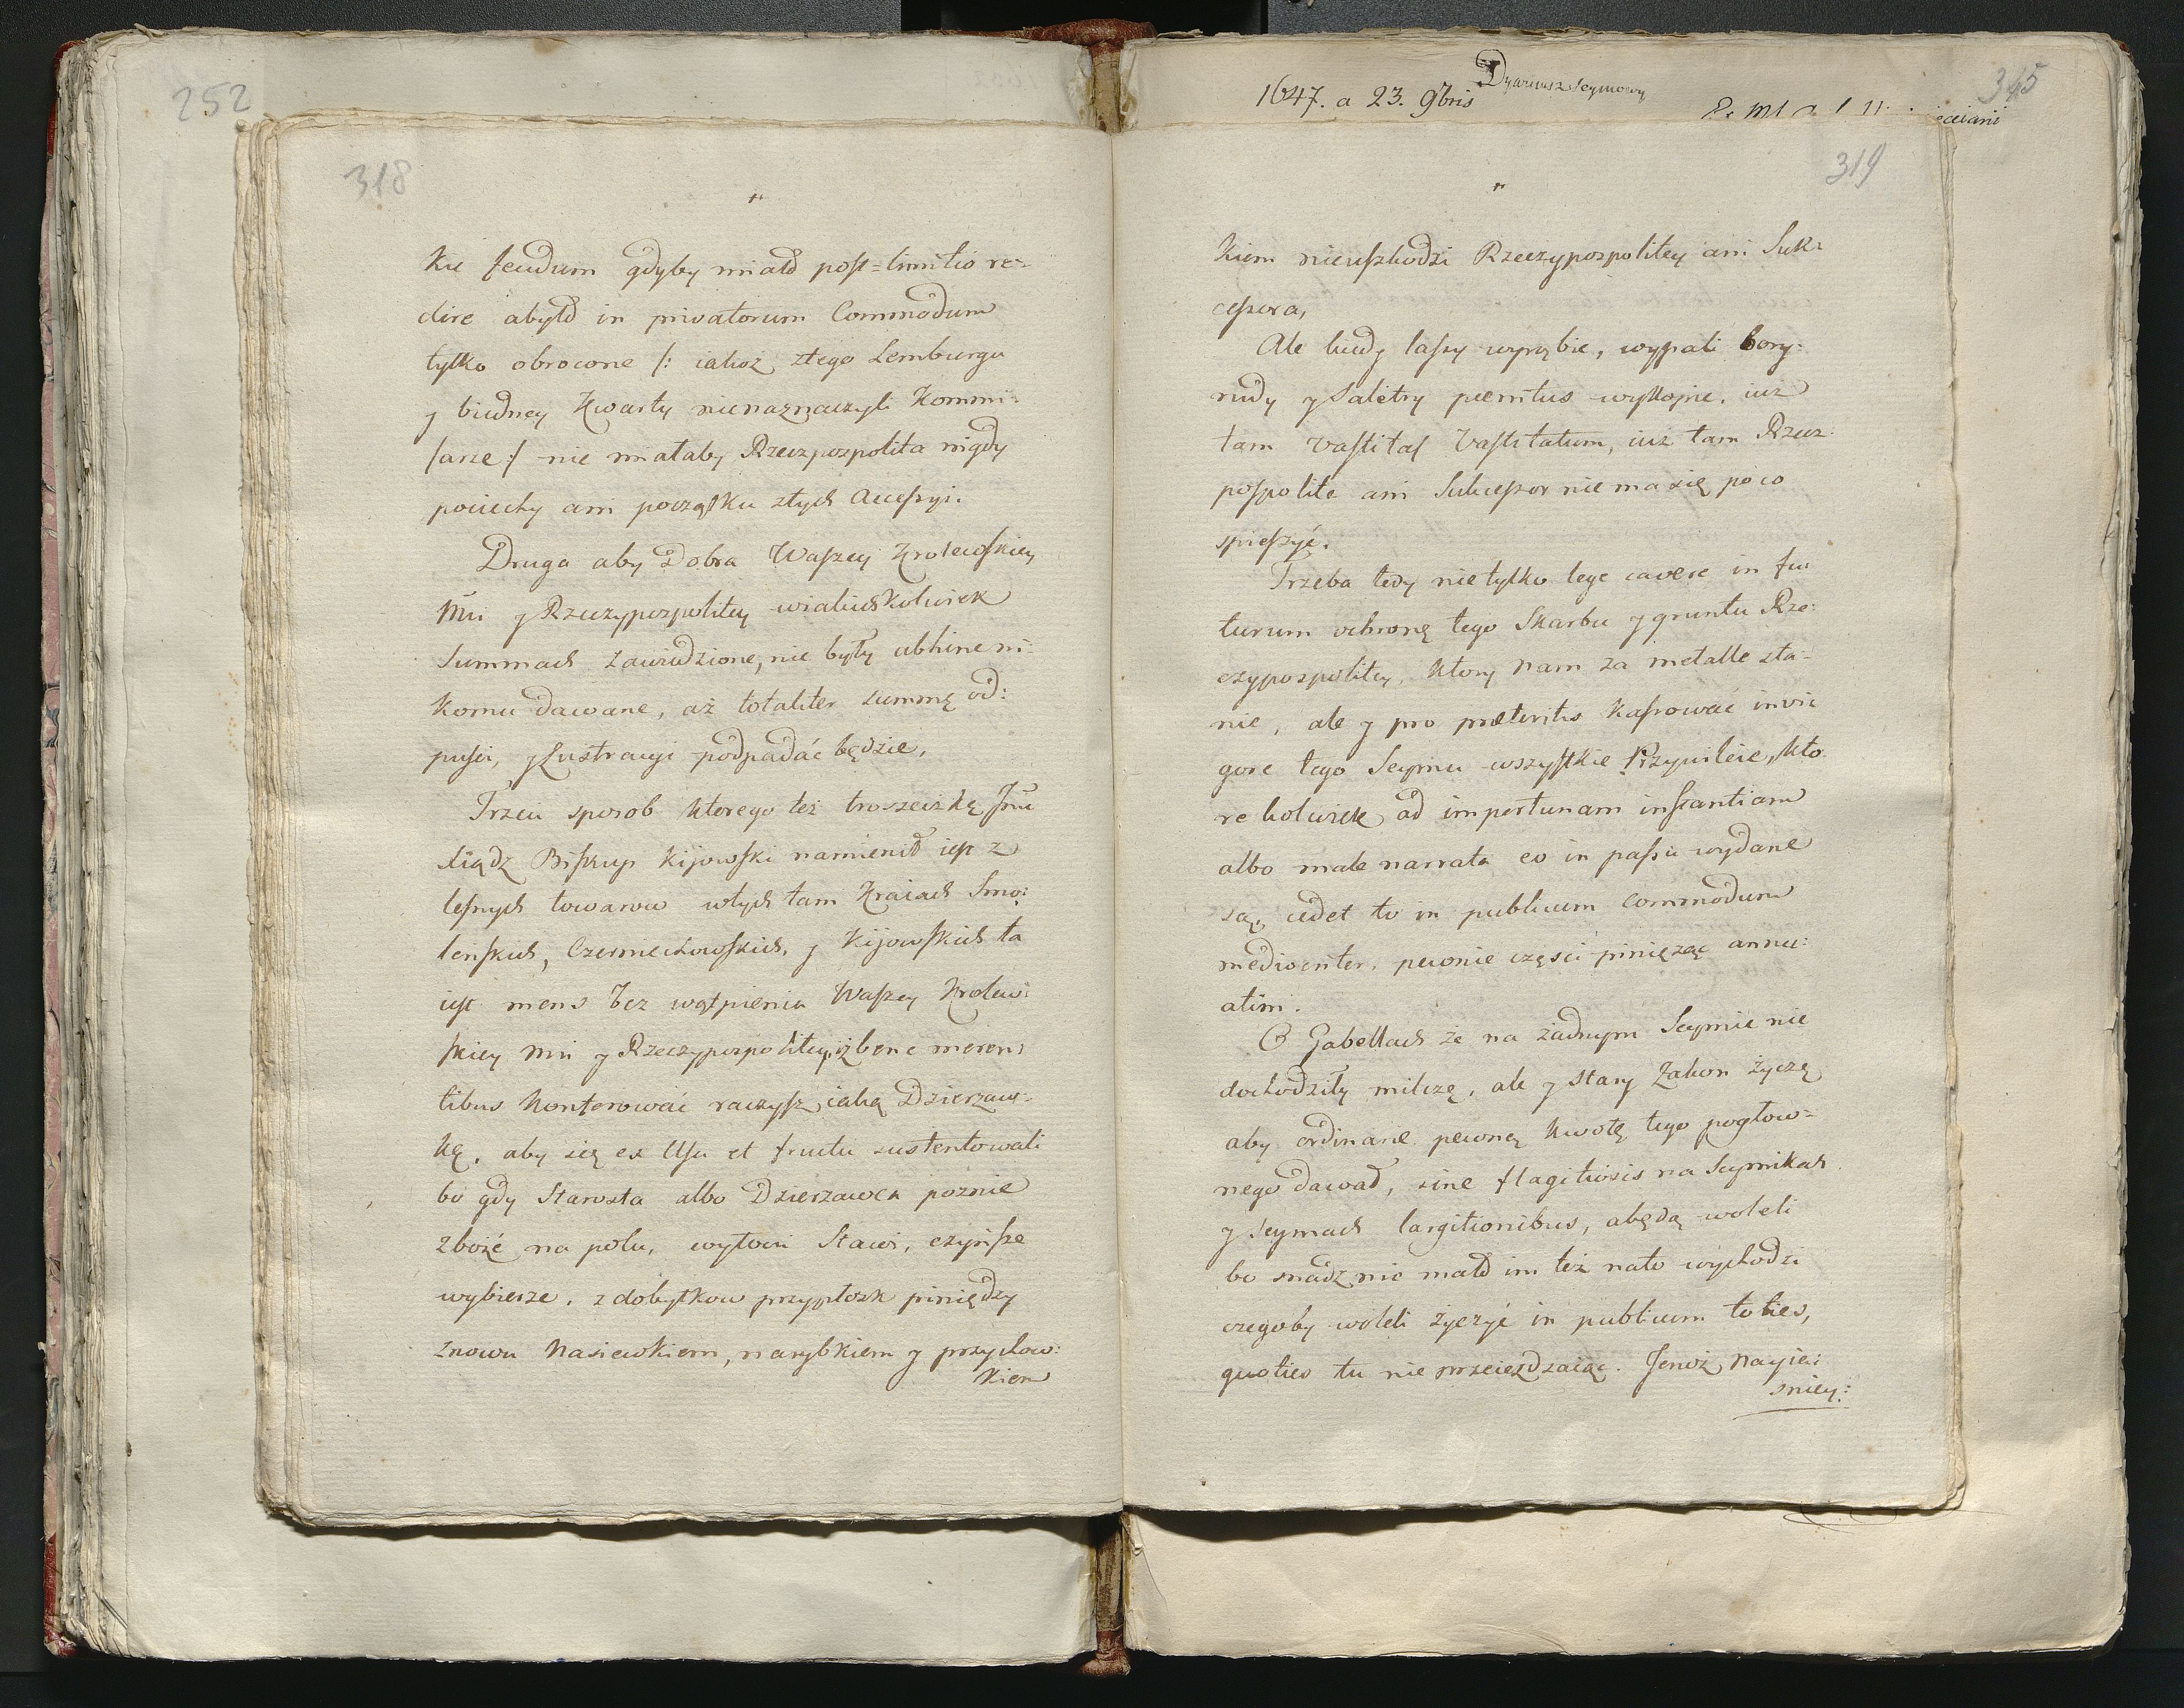 252
318
kie feudum gdyby miało post=liminio re-
dire a było in privatorum Commodum
tylko obrocone /: iakoż z tego Lemburga
y biedney Kwarty nienaznaczyli Kommi-
sarze :/ nie miałaby Rzeczpospolita nigdy
pociechy ani początku z tych Accessyi.
Druga aby Dobra Waszey Krolewskiey
Mci y Rzeczypospolitey w iakichkolwiek
Summach zawiedzione, nie były abhinc ni-
komu dawane, aż totaliter summę od:
puści, y Lustracyi podpadać będzie,
Trzeci sposob ktorego też troszeczkę Jmć
Xiądz Biskup Kijowski namienił iest z
leśnych towarow w tych tam Kraiach Smo:
leńskich, Czerniechowskich, y Kijowskich ta
iest mens bez wątpienia Waszey Krolew:
skiey Mci y Rzeczypospolitey, iż bene meren:
tibus konferować raczysz iaką Dzierzaw-
kę, aby się ex Usu et fructu sustentowali
bo gdy Starosta albo Dzierzawca pożnie
zboże na polu, wyłowi Stawi, czynsze
wybierze, z dobytkow przypłodk pieniędzy
znowu nasiewkiem, narybkiem y przychow:
kiem
1647. a 23. 9bris
Dyariusz Seymowy
345
319
kiem nieuszkodzi Rzeczypospolitey ani Suk:
cessora,
Ale kiedy lassy wyrąbie, wypali bory:
rudy y Saletry penitus wykopie, iuż
tam vastitas Vastitatum, iuż tam Rzecz:
pospolita ani Sukcessor nie ma się po co
spieszyć.
Trzeba tedy nie tylko lege cavere in fu
turum ochronę tego Skarbu y gruntu Rze:
czypospolitey, ktory nam za metalle sta-
nie, ale y pro præteritis kassować in vi:
gore tego Seymu wszystkie Przywileie, kto
re kolwiek ad importunam instantiam
albo male narrata eo in passu wydane
są, cedet to in publicum commodum
mediocriter, pewnie części pieniężąc annu:
atim.
O Gabellach że na żadnym Seymie nie
dochodziły milczę, ale y stary Zakon życzę
aby ordinarie pewną kwotę tego pogłow=
nego dawał, sine flagitiosis na Seymikach
y Seymach largitionibus, a będą woleli
bo snadz nie mało im też nato wychodzi
czegoby woleli życzyć in publicum toties,
quoties tu nie przeieżdzaiąc. Jenoż nayie:
sniey: